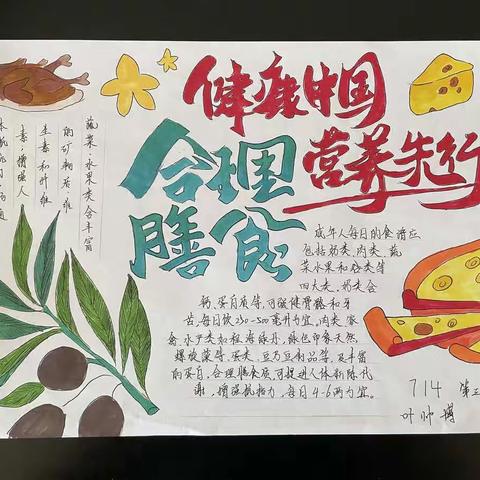 健康中国
营养先行
合理
膳食
蔬菜、水果类含丰富
的矿物质、维
生素和纤维
素,增强人
成年人每日的食谱应
包括奶类、肉类、蔬
菜水果和谷类等
四大类,奶类含
钙、蛋白质等,可强健骨骼和牙
齿,每日饮250-500毫升为宜,肉类、家
禽、水产类
螺旋藻等、蛋类、豆乃豆制品等,及丰富
的蛋白,合理膳食质,可促进人体新陈代
谢,增强抵抗力,每日4-6两为宜。
714 第
叶帅博